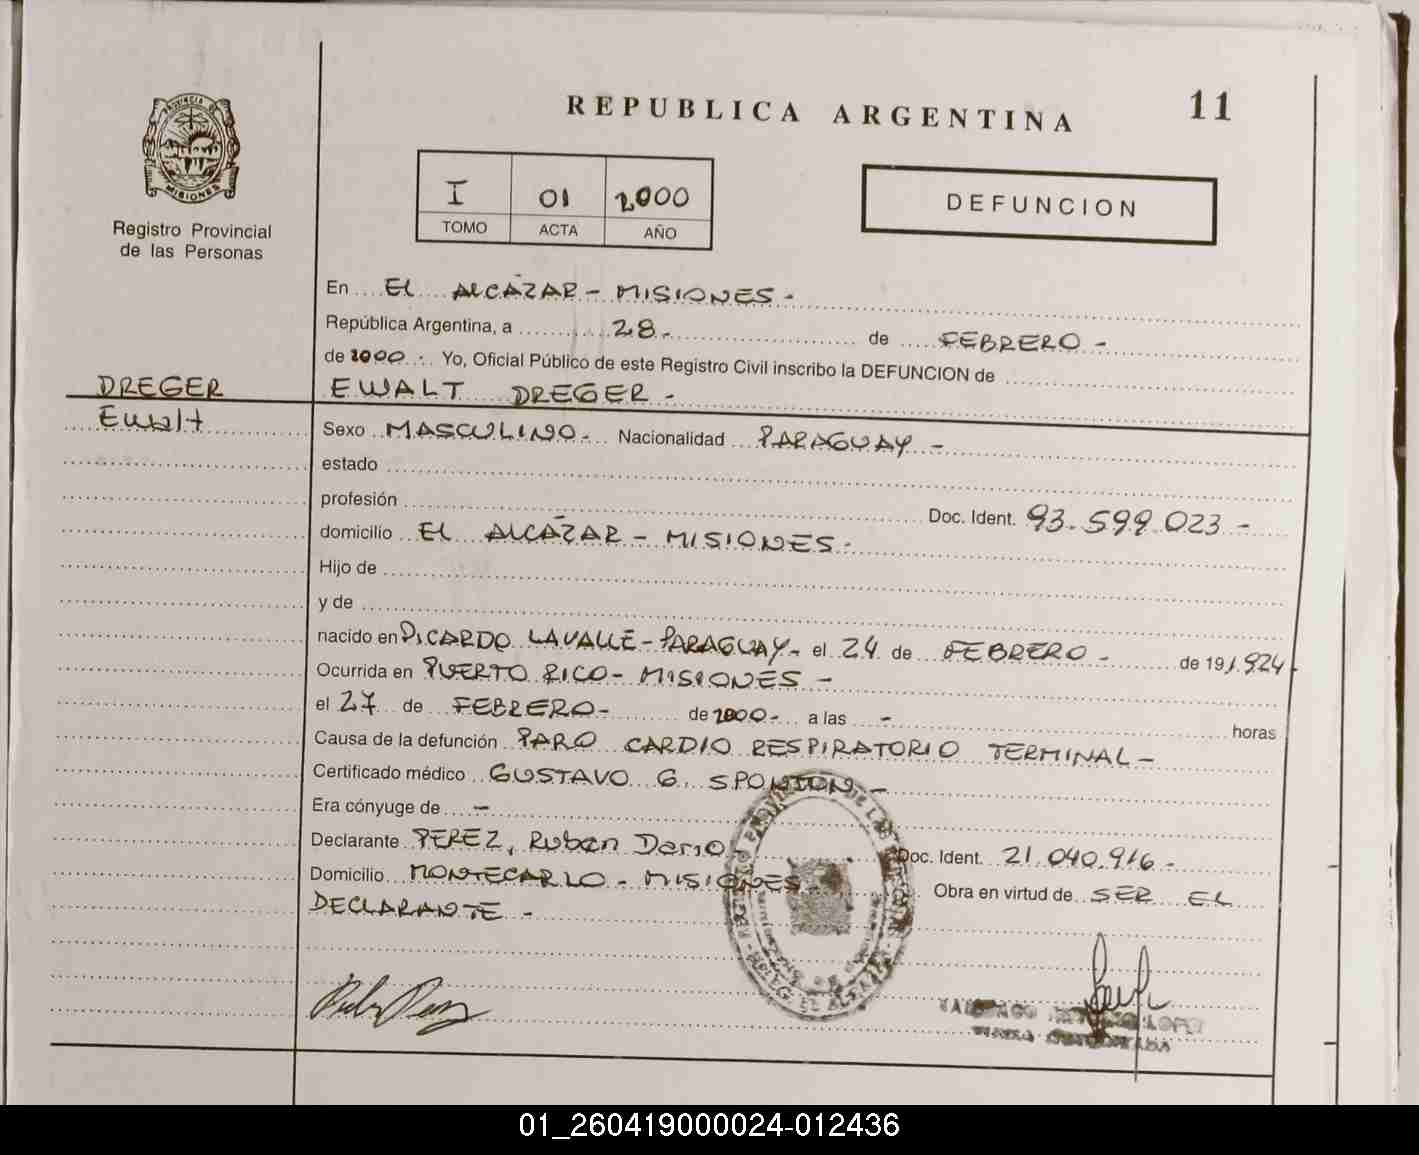 REPUBLICA ARGENTINA
11
PROVINCIA DE
MISIONES
Registro Provincial
de las Personas
I 01 2000
TOMO ACTA AÑO
DEFUNCION
En EL ALCAZAR - MISIONES -
República Argentina, a 28 - de FEBRERO -
de 2000 - Yo, Oficial Público de este Registro Civil inscribo la DEFUNCION de
DREGER
EWALT DREGER -
Ewalt
Sexo MASCULINO - Nacionalidad PARAGUAY -
estado
profesión Doc. Ident. 93.599.023 -
domicilio EL ALCAZAR - MISIONES -
Hijo de
y de
nacido en PICARDO LAVALLE - PARAGUAY - el 24 de FEBRERO - de 19 1.924 -
Ocurrida en PUERTO RICO - MISIONES -
el 27 de FEBRERO - de 2000 - a las - horas
Causa de la defunción PARO CARDIO RESPIRATORIO TERMINAL -
Certificado médico GUSTAVO G. SPONTON -
Era cónyuge de -
Declarante PEREZ, Ruben Dario - Doc. Ident. 21.040.916 -
Domicilio MONTECARLO - MISIONES - Obra en virtud de SER EL
DECLARANTE -
01_260419000024-012436